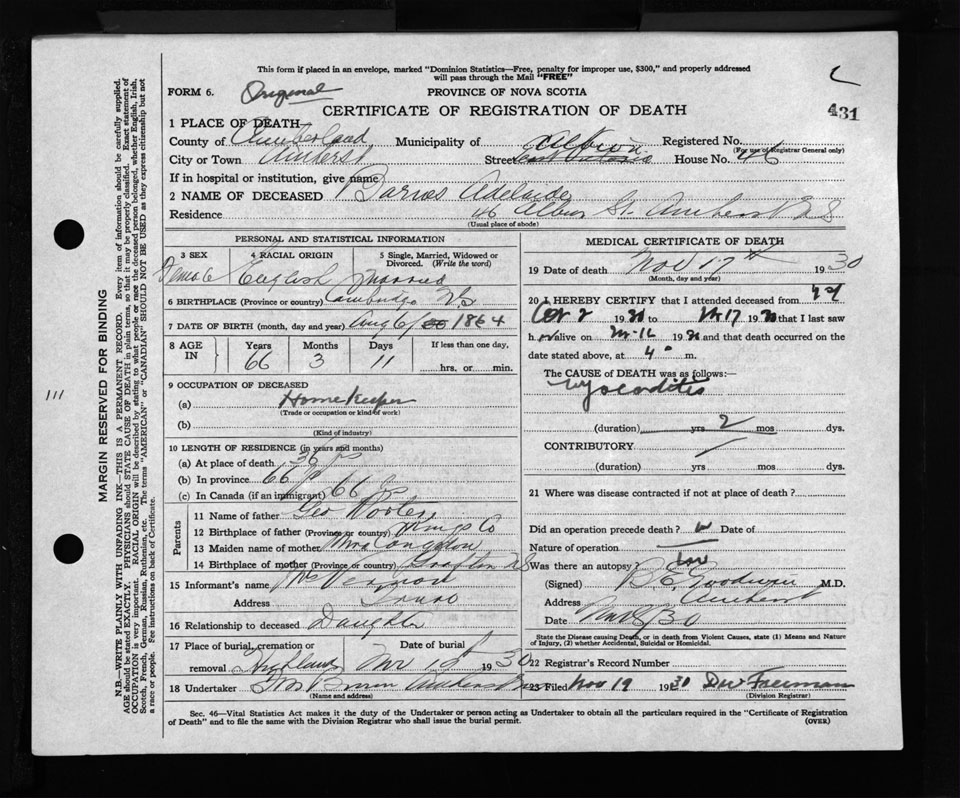 This form if placed in an envelope, marked "Dominion Statistics—Free, penalty for improper use, $300," and properly addressed
will pass through the Mail "FREE"
FORM 6. Original PROVINCE OF NOVA SCOTIA
CERTIFICATE OF REGISTRATION OF DEATH 431
1 PLACE OF DEATH—
County of Cumberland Municipality of Registered No.
(For use of Registrar General only)
City or Town Amherst Street Albion House No. 46
If in hospital or institution, give name
2 NAME OF DECEASED Barnes Adelaide
Residence 46 Albion St. Amherst N S
(Usual place of abode)
PERSONAL AND STATISTICAL INFORMATION
3 SEX 4 RACIAL ORIGIN 5 Single, Married, Widowed or
Divorced. (Write the word)
Female English Married
6 BIRTHPLACE (Province or country) Cambridge N S
7 DATE OF BIRTH (month, day and year) Aug 6/ 1864
8 AGE IN Years Months Days If less than one day,
66 3 11 hrs. or min.
9 OCCUPATION OF DECEASED
(a) Home Keeper
(Trade or occupation or kind of work)
(b)
(Kind of industry)
10 LENGTH OF RESIDENCE (in years and months)
(a) At place of death 36 yrs
(b) In province 66 yrs
(c) In Canada (if an immigrant) 66 yrs
Parents
11 Name of father Geo
12 Birthplace of father (Province or country) Kings Co
13 Maiden name of mother Mrs Congdon
14 Birthplace of mother (Province or country) Grafton N S
15 Informant's name Mrs
Address Truro
16 Relationship to deceased Daughter
17 Place of burial, cremation or Date of burial
removal Highland Nov 1930
18 Undertaker Brown Amherst
(Name and address)
MEDICAL CERTIFICATE OF DEATH
19 Date of death Nov 17th 1930
(Month, day and year)
20 I HEREBY CERTIFY that I attended deceased from
Oct 2 1930 to 17 1930 that I last saw
h alive on 16 1930 and that death occurred on the
date stated above, at 4 m.
The CAUSE of DEATH was as follows:—
Myocarditis
(duration) yrs 2 mos dys.
CONTRIBUTORY
(duration) yrs mos dys.
21 Where was disease contracted if not at place of death?
Did an operation precede death? no Date of
Nature of operation
Was there an autopsy? no
(Signed) B. E. Goodwin M.D.
Address Amherst
Date Nov 18/30
State the Disease causing Death, or in death from Violent Causes, state (1) Means and Nature
of Injury, (2) whether Accidental, Suicidal or Homicidal.
22 Registrar's Record Number
23 Filed Nov 19 1930 Freeman
(Division Registrar)
Sec. 46—Vital Statistics Act makes it the duty of the Undertaker or person acting as Undertaker to obtain all the particulars required in the "Certificate of Registration
of Death" and to file the same with the Division Registrar who shall issue the burial permit. (OVER)
MARGIN RESERVED FOR BINDING
N.B.—WRITE PLAINLY WITH UNFADING INK—THIS IS A PERMANENT RECORD. Every item of information should be carefully supplied.
AGE should be stated EXACTLY. PHYSICIANS should STATE CAUSE OF DEATH in plain terms, so that it may be properly classified. Exact statement of
OCCUPATION is very important. RACIAL ORIGIN will be described by stating to what people or race the deceased person belonged, whether English, Irish,
Scotch, French, German, Russian, Ruthenian, etc. The terms "AMERICAN" or "CANADIAN" SHOULD NOT BE USED as they express citizenship but not
a race or people. See instructions on back of Certificate.
111